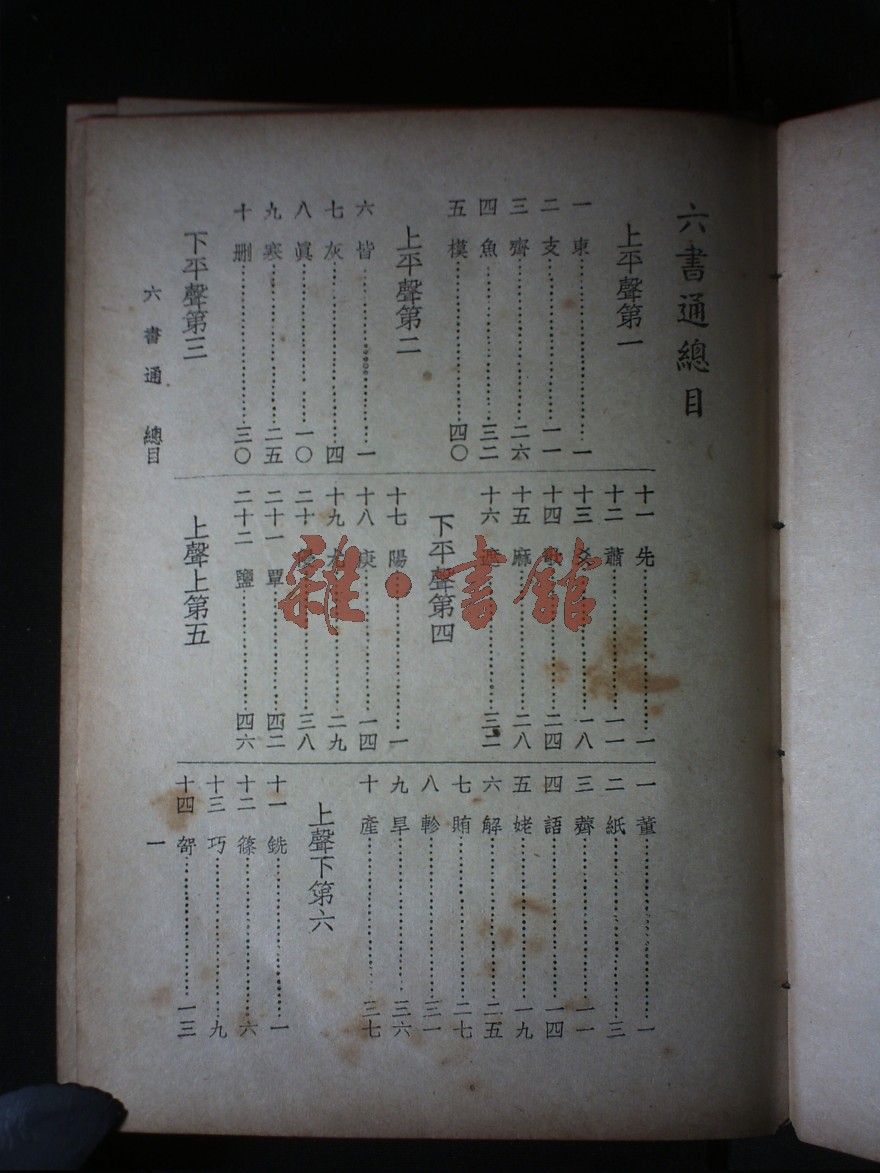 六書通總目
上平聲第一
一 東 一
二 支 一一
三 齊 二六
四 魚 三二
五 模 四〇
上平聲第二
六 皆 一
七 灰 四
八 眞 一〇
九 寒 二五
十 刪 三〇
下平聲第三
十一 先 一
十二 蕭 一一
十三 爻 一八
十四 歌 二四
十五 麻 二八
十六 遮 三二
下平聲第四
十七 陽 一
十八 庚 一四
十九 尤 二九
二十 侵 三八
二十一 覃 四二
二十二 鹽 四六
上聲上第五
一 董 一
二 紙 三
三 薺 一一
四 語 一四
五 姥 一九
六 解 二五
七 賄 二七
八 軫 三一
九 旱 三六
十 產 三七
上聲下第六
十一 銑 一
十二 篠 六
十三 巧 九
十四 哿 一三
六書通 總目
一
雜·書館